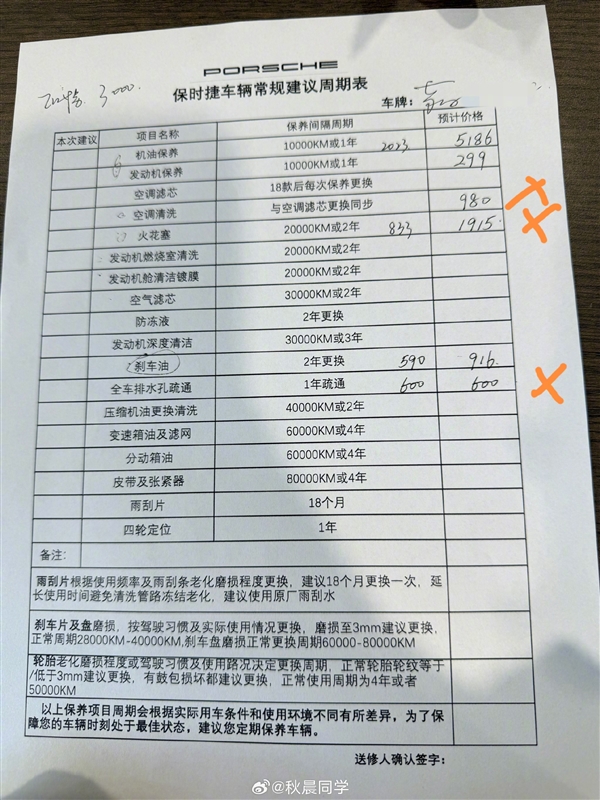 PORSCHE
保时捷车辆常规建议周期表
3000.
车牌：
本次建议 项目名称 保养间隔周期 预计价格
机油保养 10000KM或1年 2023 5186
发动机保养 10000KM或1年 299
空调滤芯 18款后每次保养更换
空调清洗 与空调滤芯更换同步 980
火花塞 20000KM或2年 833 1915
发动机燃烧室清洗 20000KM或2年
发动机舱清洁镀膜 20000KM或2年
空气滤芯 30000KM或2年
防冻液 2年更换
发动机深度清洁 30000KM或3年
刹车油 2年更换 590 916
全车排水孔疏通 1年疏通 600 600
压缩机油更换清洗 40000KM或2年
变速箱油及滤网 60000KM或4年
分动箱油 60000KM或4年
皮带及张紧器 80000KM或4年
雨刮片 18个月
四轮定位 1年
备注：
雨刮片根据使用频率及雨刮条老化磨损程度更换，建议18个月更换一次，延
长使用时间避免清洗管路冻结老化，建议使用原厂雨刮水
刹车片及盘磨损，按驾驶习惯及实际使用情况更换，磨损至3mm建议更换，
正常周期28000KM-40000KM,刹车盘磨损正常更换周期60000-80000KM
轮胎老化磨损程度或驾驶习惯及使用路况决定更换周期，正常轮胎轮纹等于
/低于3mm建议更换，有鼓包损坏都建议更换，正常使用周期为4年或者
50000KM
以上保养项目周期会根据实际用车条件和使用环境不同有所差异，为了保
障您的车辆时刻处于最佳状态，建议您定期保养车辆。
送修人确认签字：
@秋晨同学